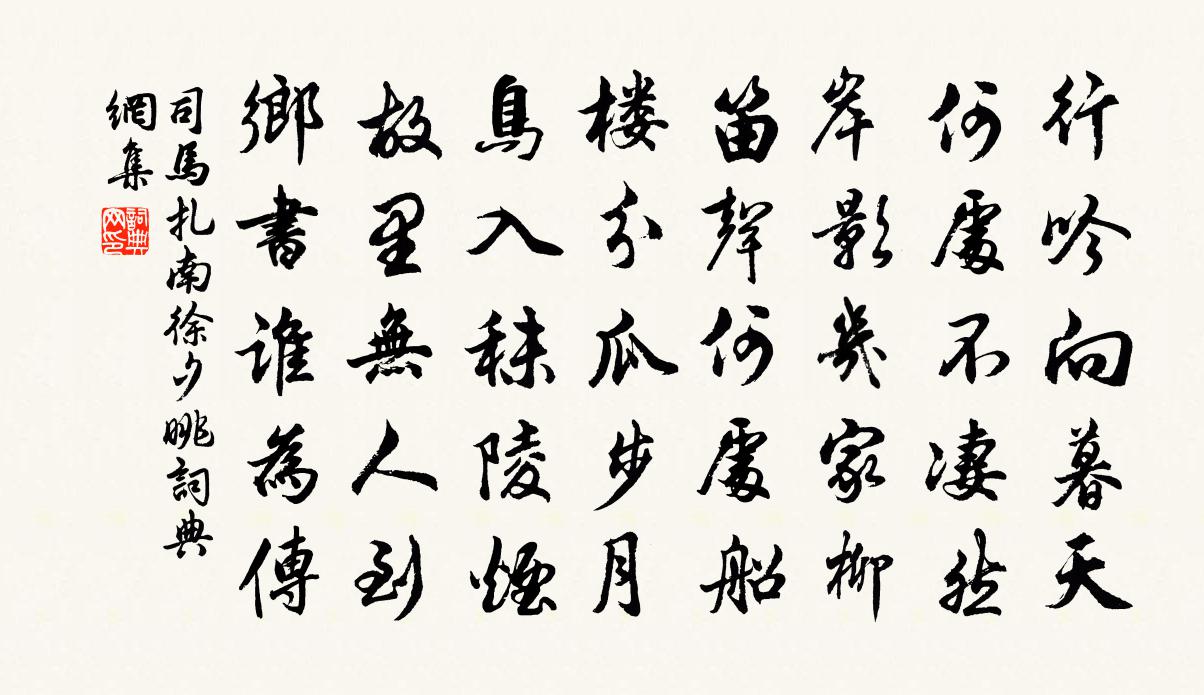 行吟向暮天
何處不凄然
岸影幾家柳
笛聲何處船
楼分瓜步月
鳥入秣陵煙
故里無人到
鄉書誰為傳
司馬扎南徐夕眺詞典
網集
詞典
网印